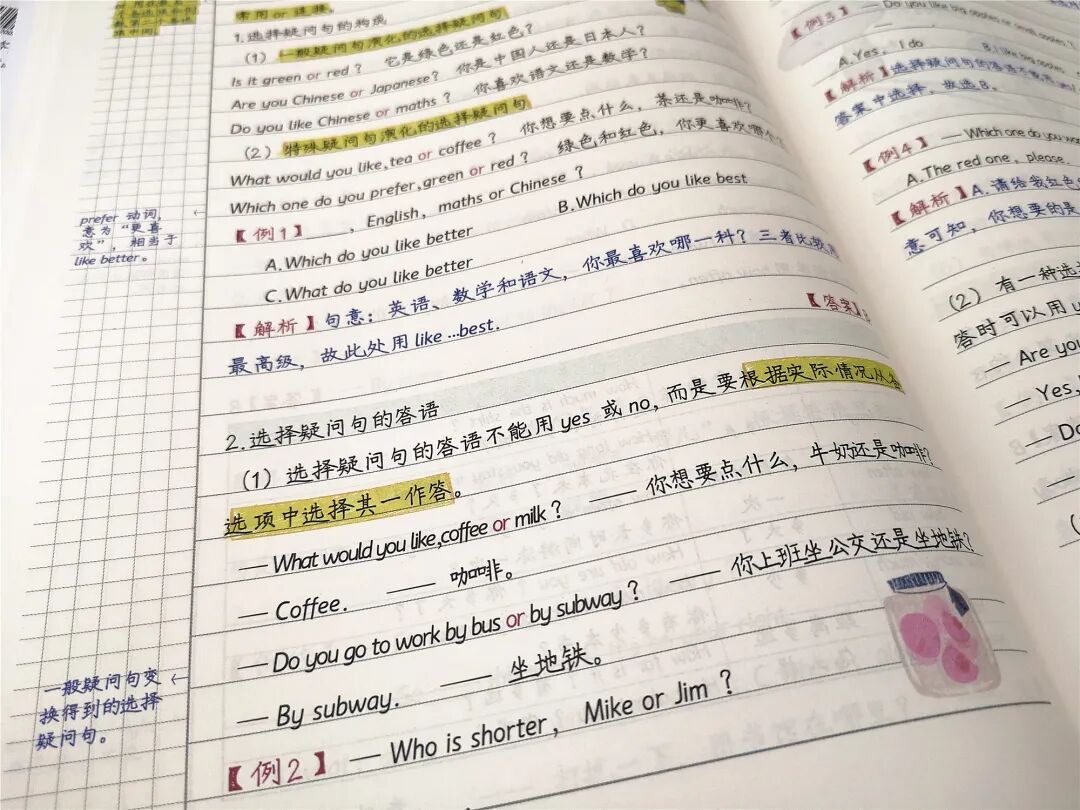 常用or连接。
1.选择疑问句的构成
（1）一般疑问句演化的选择疑问句
Is it green or red？ 它是绿色还是红色？
Are you Chinese or Japanese？ 你是中国人还是日本人？
Do you like Chinese or maths？ 你喜欢语文还是数学？
（2）特殊疑问句演化的选择疑问句
What would you like,tea or coffee？ 你想要点什么，茶还是咖啡？
Which one do you prefer,green or red？ 绿色和红色，你更喜欢哪个？
prefer 动词，
意为“更喜
欢”，相当于
like better。
【例1】 ，English，maths or Chinese？
A.Which do you like better B.Which do you like best
C.What do you like better
【解析】句意：英语、数学和语文，你最喜欢哪一科？三者比较用
最高级，故此处用like…best. 【答案】
2.选择疑问句的答语
（1）选择疑问句的答语不能用yes 或no，而是要根据实际情况从
选项中选择其一作答。
— What would you like,coffee or milk？ —— 你想要点什么，牛奶还是咖啡？
— Coffee. —— 咖啡。
— Do you go to work by bus or by subway？ —— 你上班坐公交还是坐地铁？
— By subway. —— 坐地铁。
一般疑问句变
换得到的选择
疑问句。
【例2】— Who is shorter，Mike or Jim？
【例3】— Do you like big apples or small
A.Yes，I do B.I like big apples
【解析】选择疑问句的答语不能用
答案中选择，故选B。
【例4】— Which one do you
A.The red one，please.
【解析】A.请给我红色
意可知，你想要的是
（2）有一种选
答时可以用
— Are you
— Yes,
— Do